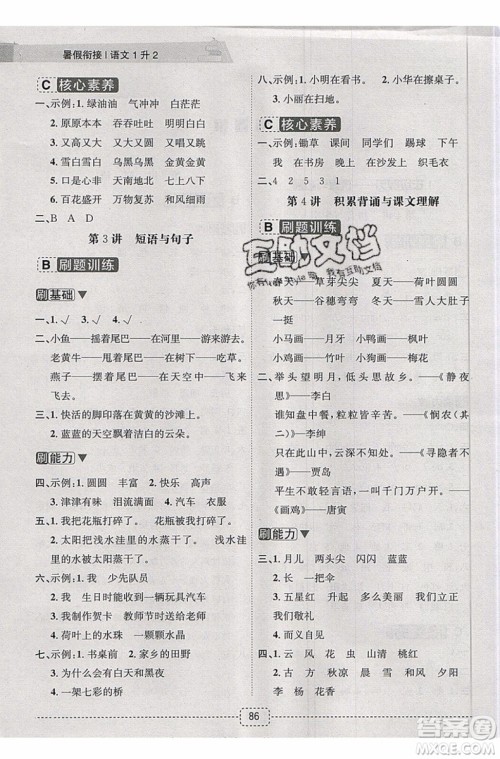 暑假衔接 | 语文 1 升 2
C 核心素养
一、示例:1. 绿油油 气冲冲 白花花
2. 原原本本 日日夜夜
3. 又高又大 又说又笑
4. 雪白雪白 乌黑乌黑 金黄金黄
5. 口是心非 大同小异
6. 百花盛开 万物复苏
二、B A D
第 3 讲 短语与句子
B 刷题训练
刷基础
一、1. √ 3. √
二、小鱼——摆着尾巴——在河里——游来游去。
老黄牛——甩着尾巴——在牛栏里——吃草。
燕子——摆着尾巴——在天空中——飞来飞去。
三、1. 快活的脚印落在黄黄的沙滩上。
2. 蓝蓝的天空飘着洁白的云朵。
刷能力
四、示例:1. 圆圆 丰富 2. 快乐 高声
3. 津津有味 4. 汽车 衣服
五、1. 我把花瓶打碎了。 花瓶被我打碎了。
2. 太阳把浅水洼里的水蒸干了。 浅水洼里的水被太阳蒸干了。
六、示例:1. 我 少先队员
2. 我 生日时能收到一辆玩具汽车
3. 我们制作贺卡 教师节时送给老师
4. 荷叶上的水珠 一颗颗珍珠
七、示例:1. 书桌前 2. 家乡的田野
3. 为什么会有白天和黑夜
4. 一架七彩的桥
八、示例:1. 小刚在浇花。 2. 小明在擦桌子。
3. 小丽在扫地。
C 核心素养
一、示例:锄草 同学们 踢球 下午
我 在书房 晚上 在沙发上 织毛衣
二、4 2 5 3 1
第 4 讲 积累背诵与课文理解
B 刷题训练
刷基础
一、春天——草芽尖尖 夏天——荷叶圆圆
秋天——谷穗弯弯 冬天——雪人大肚子一挺
小马画——月牙 小鸭画——枫叶
小鸡画——竹叶 小狗画——梅花
二、举头望明月,低头思故乡。——《静夜思》——李白
谁知盘中餐,粒粒皆辛苦。——《悯农(其二)》——李绅
只在此山中,云深不知处。——《寻隐者不遇》——贾岛
平生不敢轻言语,一叫千门万户开。——《画鸡》——唐寅
刷能力
三、1. 月儿 两头尖 闪闪 蓝蓝
2. 长 一把伞
3. 五星红 升起 多么美丽 向您敬礼
4. 见义勇为
四、1. 春风 花 虫 清 冻
2. 古 方 秋凉 雪 和风 夕阳
李 杨 桃 荷 菊 桂
86